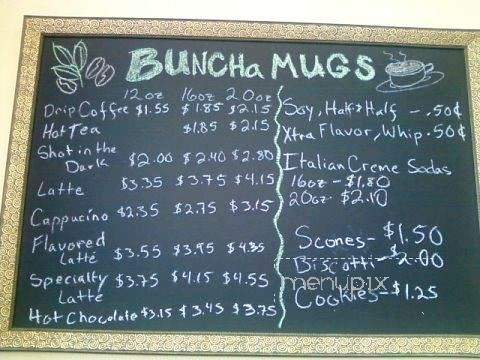 BUNCHa MUGS
12oz 16oz 20oz
Drip Coffee $1.55 $1.85 $2.15
Hot Tea $1.85 $2.15
Shot in the
Dark $2.00 $2.40 $2.80
Latte $3.35 $3.75 $4.15
Cappucino $2.35 $2.75 $3.15
Flavored
Latte $3.55 $3.95 $4.35
Specialty
Latte $3.75 $4.15 $4.55
Hot Chocolate $3.15 $3.45 $3.75
Soy, Half & Half - .50¢
Xtra Flavor, Whip .50¢
Italian Creme Sodas
16oz - $1.80
20oz - $2.10
Scones - $1.50
Biscotti - $2.00
Cookies - $1.25
menupix